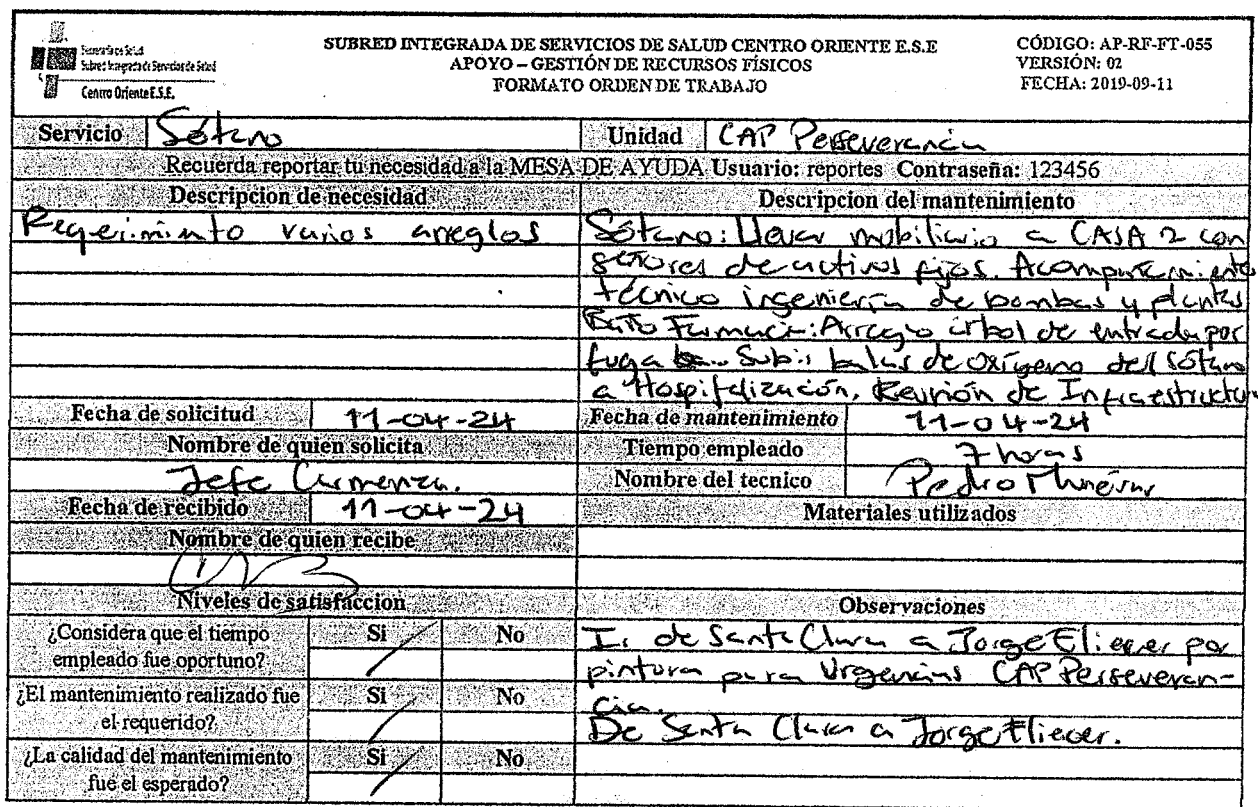 Secretaría de Salud
Subred Integrada de Servicios de Salud
Centro Oriente E.S.E.
SUBRED INTEGRADA DE SERVICIOS DE SALUD CENTRO ORIENTE E.S.E
APOYO – GESTIÓN DE RECURSOS FÍSICOS
FORMATO ORDEN DE TRABAJO
CÓDIGO: AP-RF-FT-055
VERSIÓN: 02
FECHA: 2019-09-11
Servicio Sótano Unidad CAP Perseverancia
Recuerda reportar tu necesidad a la MESA DE AYUDA Usuario: reportes Contraseña: 123456
Descripcion de necesidad
Reqerimiento varios arreglos
Descripcion del mantenimiento
Sótano: Llevar mobiliario a CASA 2 con
señores de activos fijos. Acompañamiento
técnico ingeniería de bombas y plantas
Baño Farmacia: Arreglo árbol de entrada por
fuga Subir balas de oxígeno del sótano
a Hospitalización. Reunión de Infraestructura
Fecha de solicitud 11-04-24
Fecha de mantenimiento 11-04-24
Nombre de quien solicita
Jefe Carmenza.
Tiempo empleado 7 horas
Nombre del tecnico Pedro Múnevar
Fecha de recibido 11-04-24
Materiales utilizados
Nombre de quien recibe
Niveles de satisfaccion
Observaciones
¿Considera que el tiempo
empleado fue oportuno?
Si No
¿El mantenimiento realizado fue
el requerido?
Si No
¿La calidad del mantenimiento
fue el esperado?
Si No
Ir de Santa Clara a Jorge Eliecer por
pintura para Urgencias CAP Perseveran-
cia.
De Santa Clara a Jorge Eliecer.